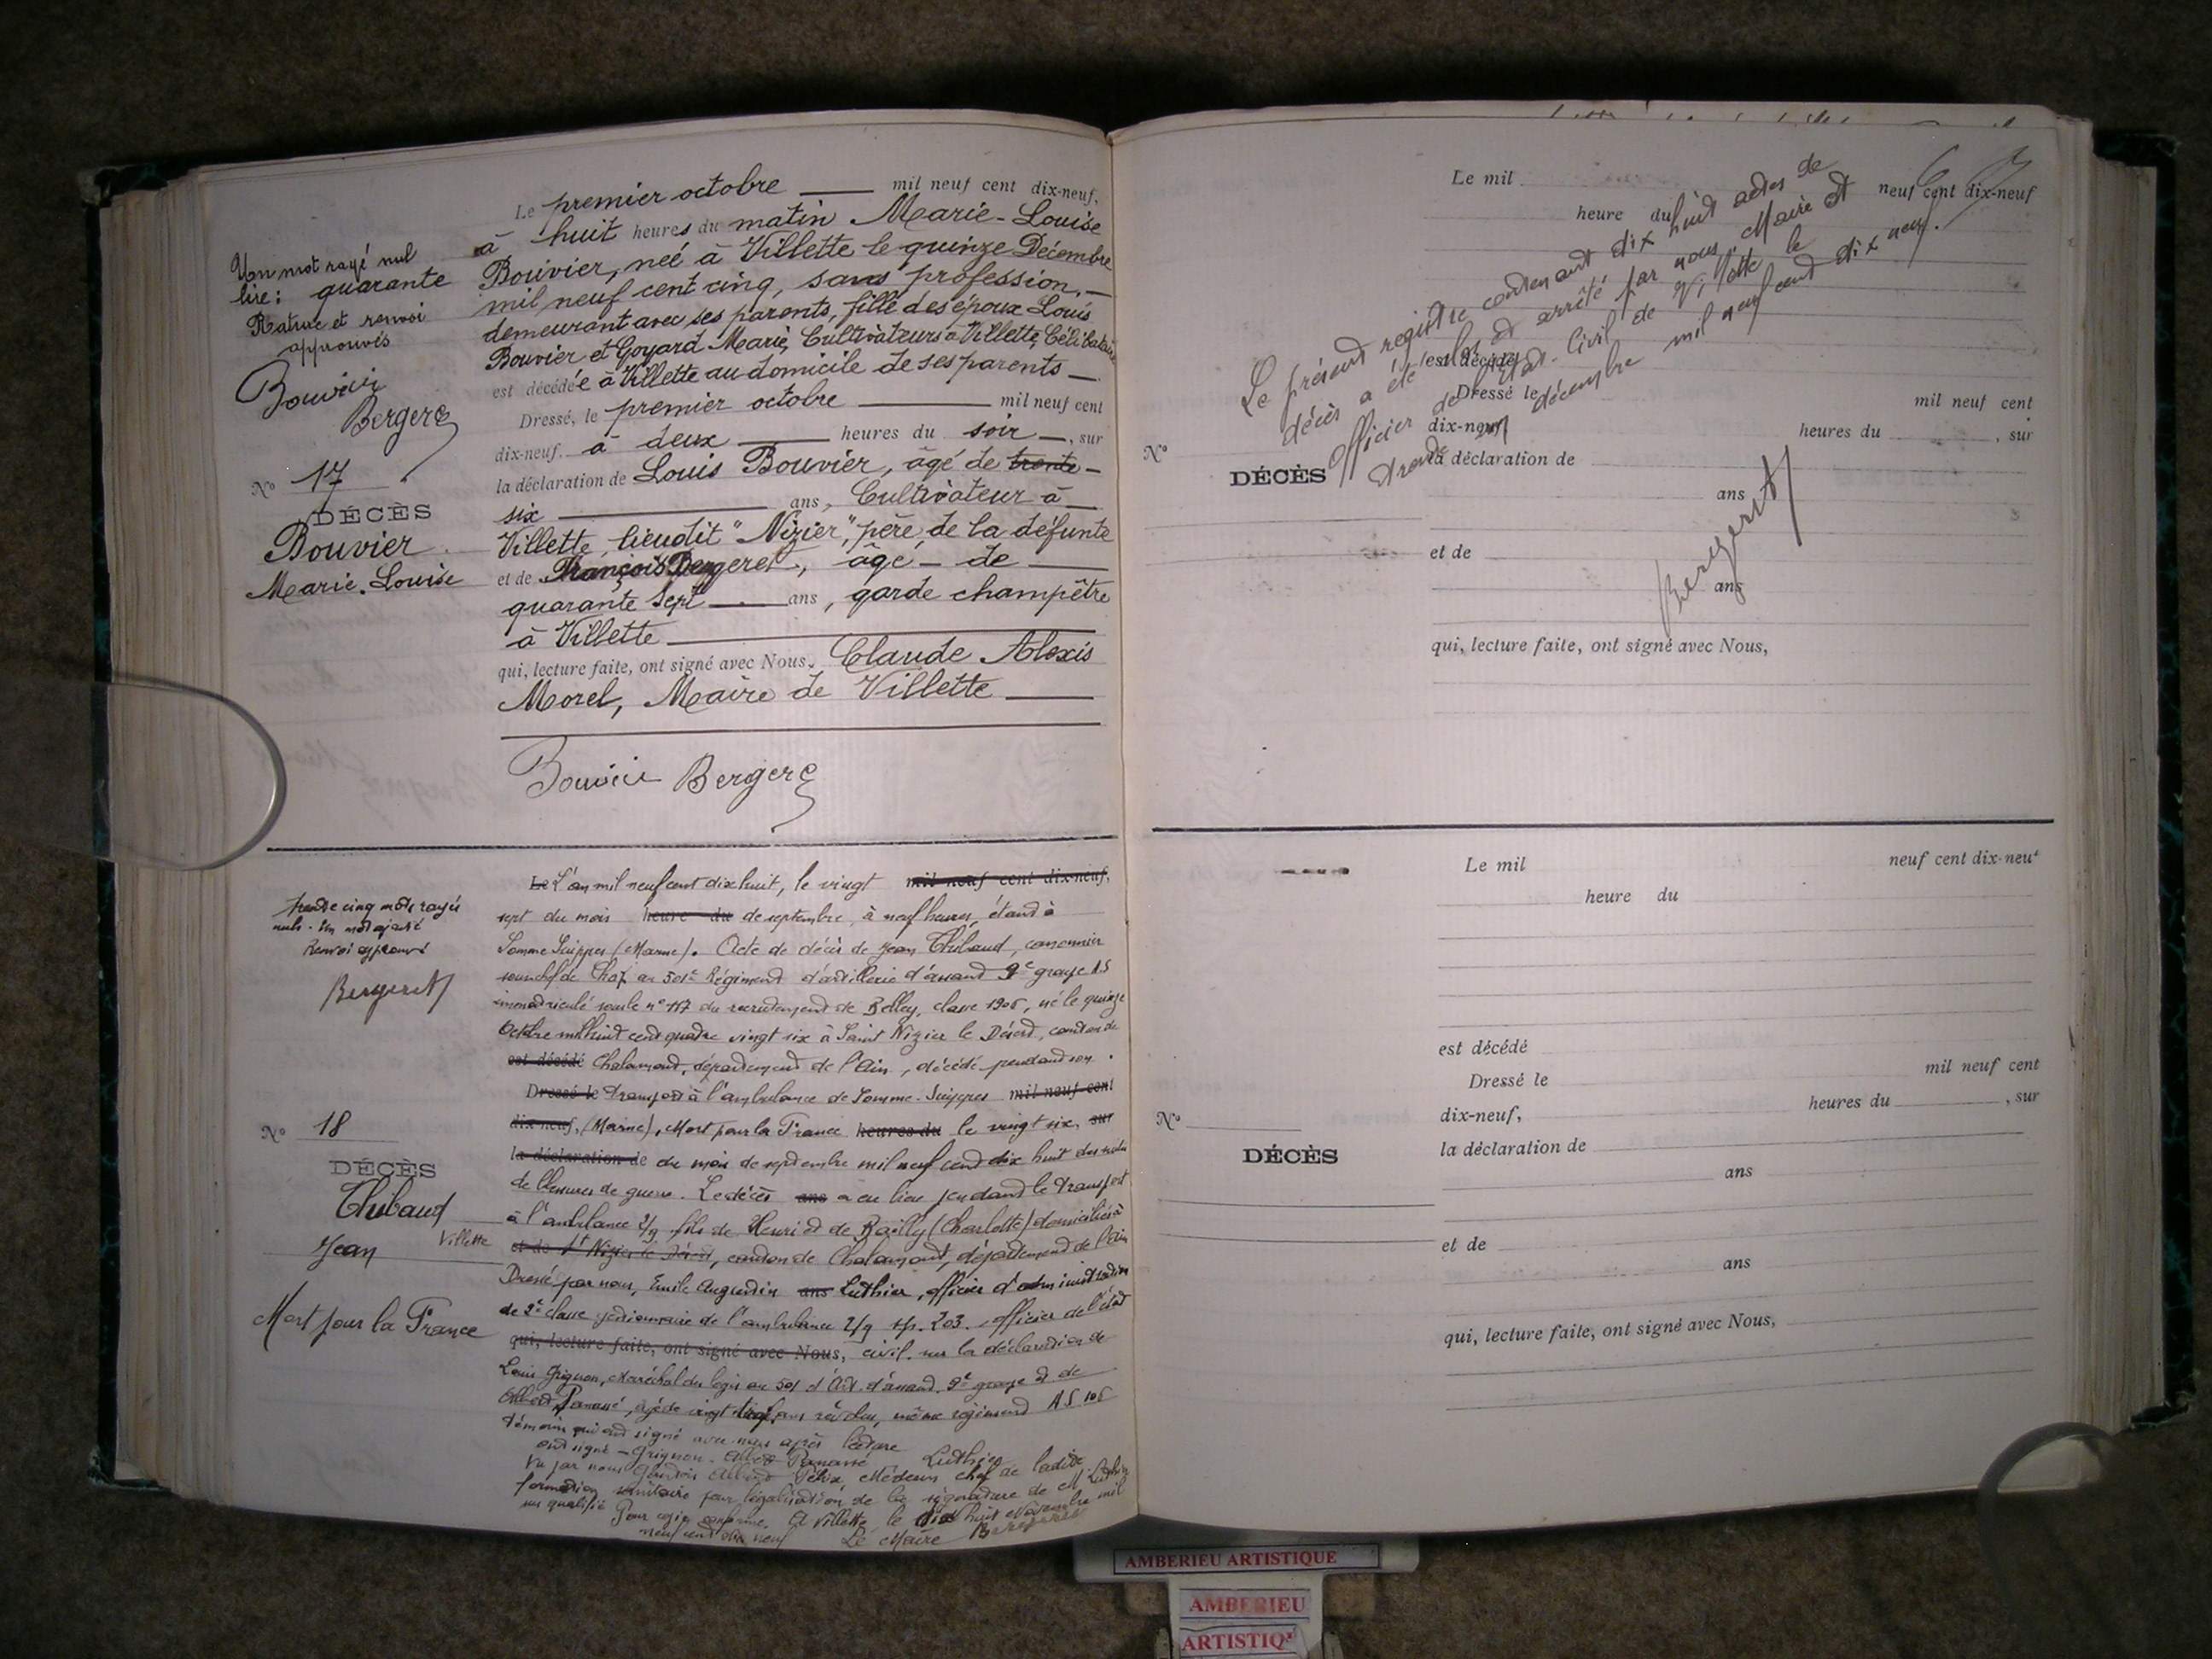 Un mot rayé nul
lire : quarante
Rature et renvoi
approuvés
Bouvier
Bergeret
N° 17
DÉCÈS
Bouvier
Marie-Louise
Le premier octobre mil neuf cent dix-neuf,
à huit heures du matin Marie-Louise
Bouvier, neé à Villette le quinze Décembre
mil neuf cent cinq, sans profession,
demeurant avec ses parents, fille des époux Louis
Bouvier et Goyard Marie, Cultivateurs à Villette, Célibataire
est décédée à Villette au domicile de ses parents
Dressé, le premier octobre mil neuf cent
dix-neuf, à deux heures du soir, sur
la déclaration de Louis Bouvier, âgé de trente-
six ans, Cultivateur à
Villette, lieudit "Nizier", père de la défunte
et de François Bergeret, âgé de
quarante sept ans, garde champêtre
à Villette
qui, lecture faite, ont signé avec Nous, Claude Alexis
Morel, Maire de Villette
Bouvier Bergeret
trente cinq mots rayés
nuls. Un mot ajouté
Renvoi approuvé
Bergeret
N° 18
DÉCÈS
Thibaud
Jean
Villette
Mort pour la France
Le L'an mil neuf cent dix huit, le vingt mil neuf cent dix-neuf,
sept du mois heure du de septembre, à neuf heures, étant à
Somme Suippes (Marne). Acte de décès de Jean Thibaud, canonnier
au 501e Régiment d'artillerie d'assaut 9e groupe AS
immatriculé sous le n° 117 du recrutement de Belley, classe 1906, né le quinze
Octobre mil huit cent quatre vingt six à Saint Nizier le Désert, canton de
est décédé Chalamont, département de l'Ain, décédé pendant son
Dressé le transport à l'ambulance de Somme-Suippes mil neuf cent
dix-neuf, (Marne), Mort pour la France heures du le vingt six, sur
la déclaration de du mois de septembre mil neuf cent dix huit des suites
de blessures de guerre. Le décès ans a eu lieu pendant le transport
à l'ambulance 2/9 fils de Henri et de Railly (Charlotte) domiciliés à
et de St Nizier le Désert, canton de Chalamont, département de l'Ain
Dressé par nous, Emile Augustin ans Luthier, officier d'administration
de 2e classe gestionnaire de l'ambulance 2/9 sp. 203. officier de l'état
qui, lecture faite, ont signé avec Nous, civil. sur la déclaration de
Louis Grignon, Maréchal des logis au 501 d'Art. d'assaut. 9e groupe et de
Albert, âgé de vingt ans révolus, même régiment AS
témoins qui ont signé avec nous après lecture
ont signé - Grignon - Albert Luthier
Vu par nous Albert Félix Médecin chef de ladite
formation sanitaire pour légalisation de la signature de M. Luthier
sus qualifié Pour copie conforme. A Villette le dix huit Novembre mil
neuf cent dix neuf Le Maire Bergeret
Le mil neuf cent dix-neuf
heure du
Le présent registre contenant dix huit actes de
décès a été clos et arrêté par nous, Maire et
Officier de l'Etat-Civil de Villette le
trente décembre mil neuf cent dix neuf.
Bergeret
est décédé
Dressé le mil neuf cent
dix-neuf heures du , sur
N°
la déclaration de
DÉCÈS
ans
et de
ans
qui, lecture faite, ont signé avec Nous,
Le mil neuf cent dix-neuf
heure du
est décédé
Dressé le mil neuf cent
dix-neuf, heures du , sur
N°
la déclaration de
DÉCÈS
ans
et de
ans
qui, lecture faite, ont signé avec Nous,
AMBERIEU ARTISTIQUE
AMBERIEU
ARTISTIQ